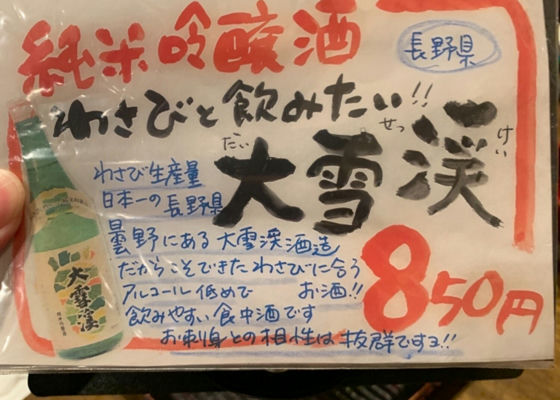 純米吟醸酒
長野県
わさびと飲みたい!!
だい せっ けい
大雪渓
わさび生産量
日本一の長野県
曇野にある大雪渓酒造
だからこそできたわさびに合う
アルコール低めで お酒!!
飲みやすい食中酒です
お刺身との相性は抜群ですヨ!!
850円
大雪渓